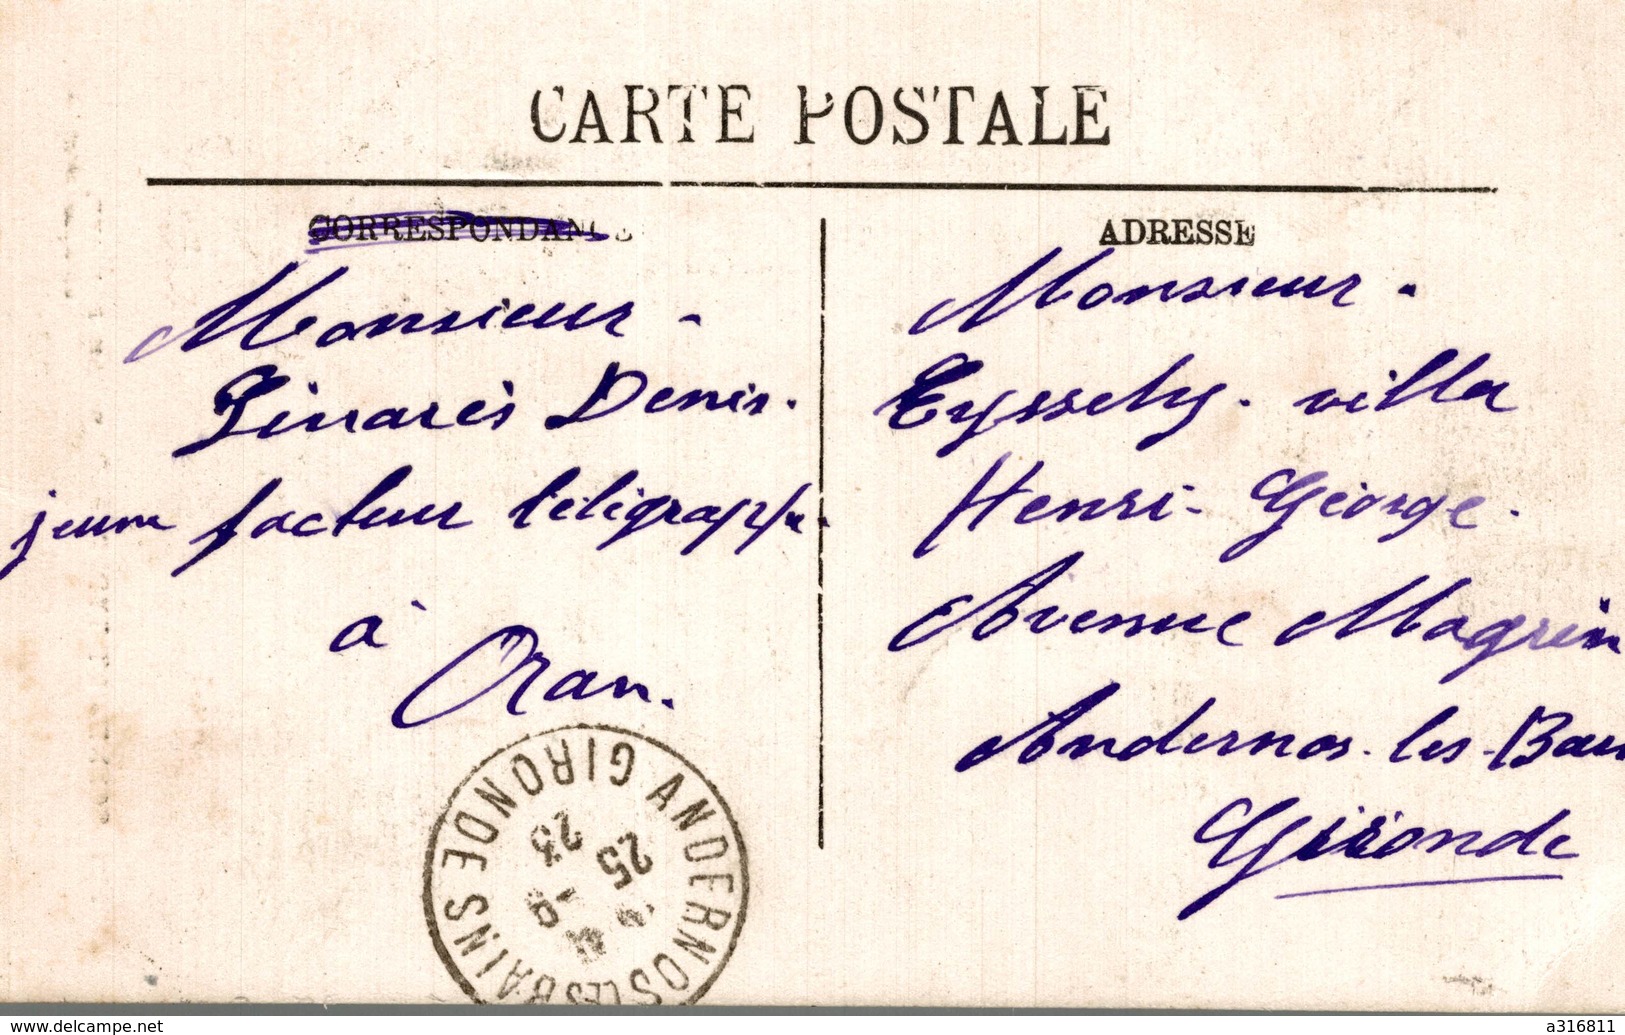 CARTE POSTALE
CORRESPONDANCE
Monsieur -
Linarès Denis.
jeune facteur téligraph
à
Oran.
ADRESSE
Monsieur.
Eyssely. villa
Henri-George.
Avenue Magrin
Andernos-les-Bain
Gironde
ANDERNOS LES BAINS GIRONDE
25
23
www.delcampe.net
a316811